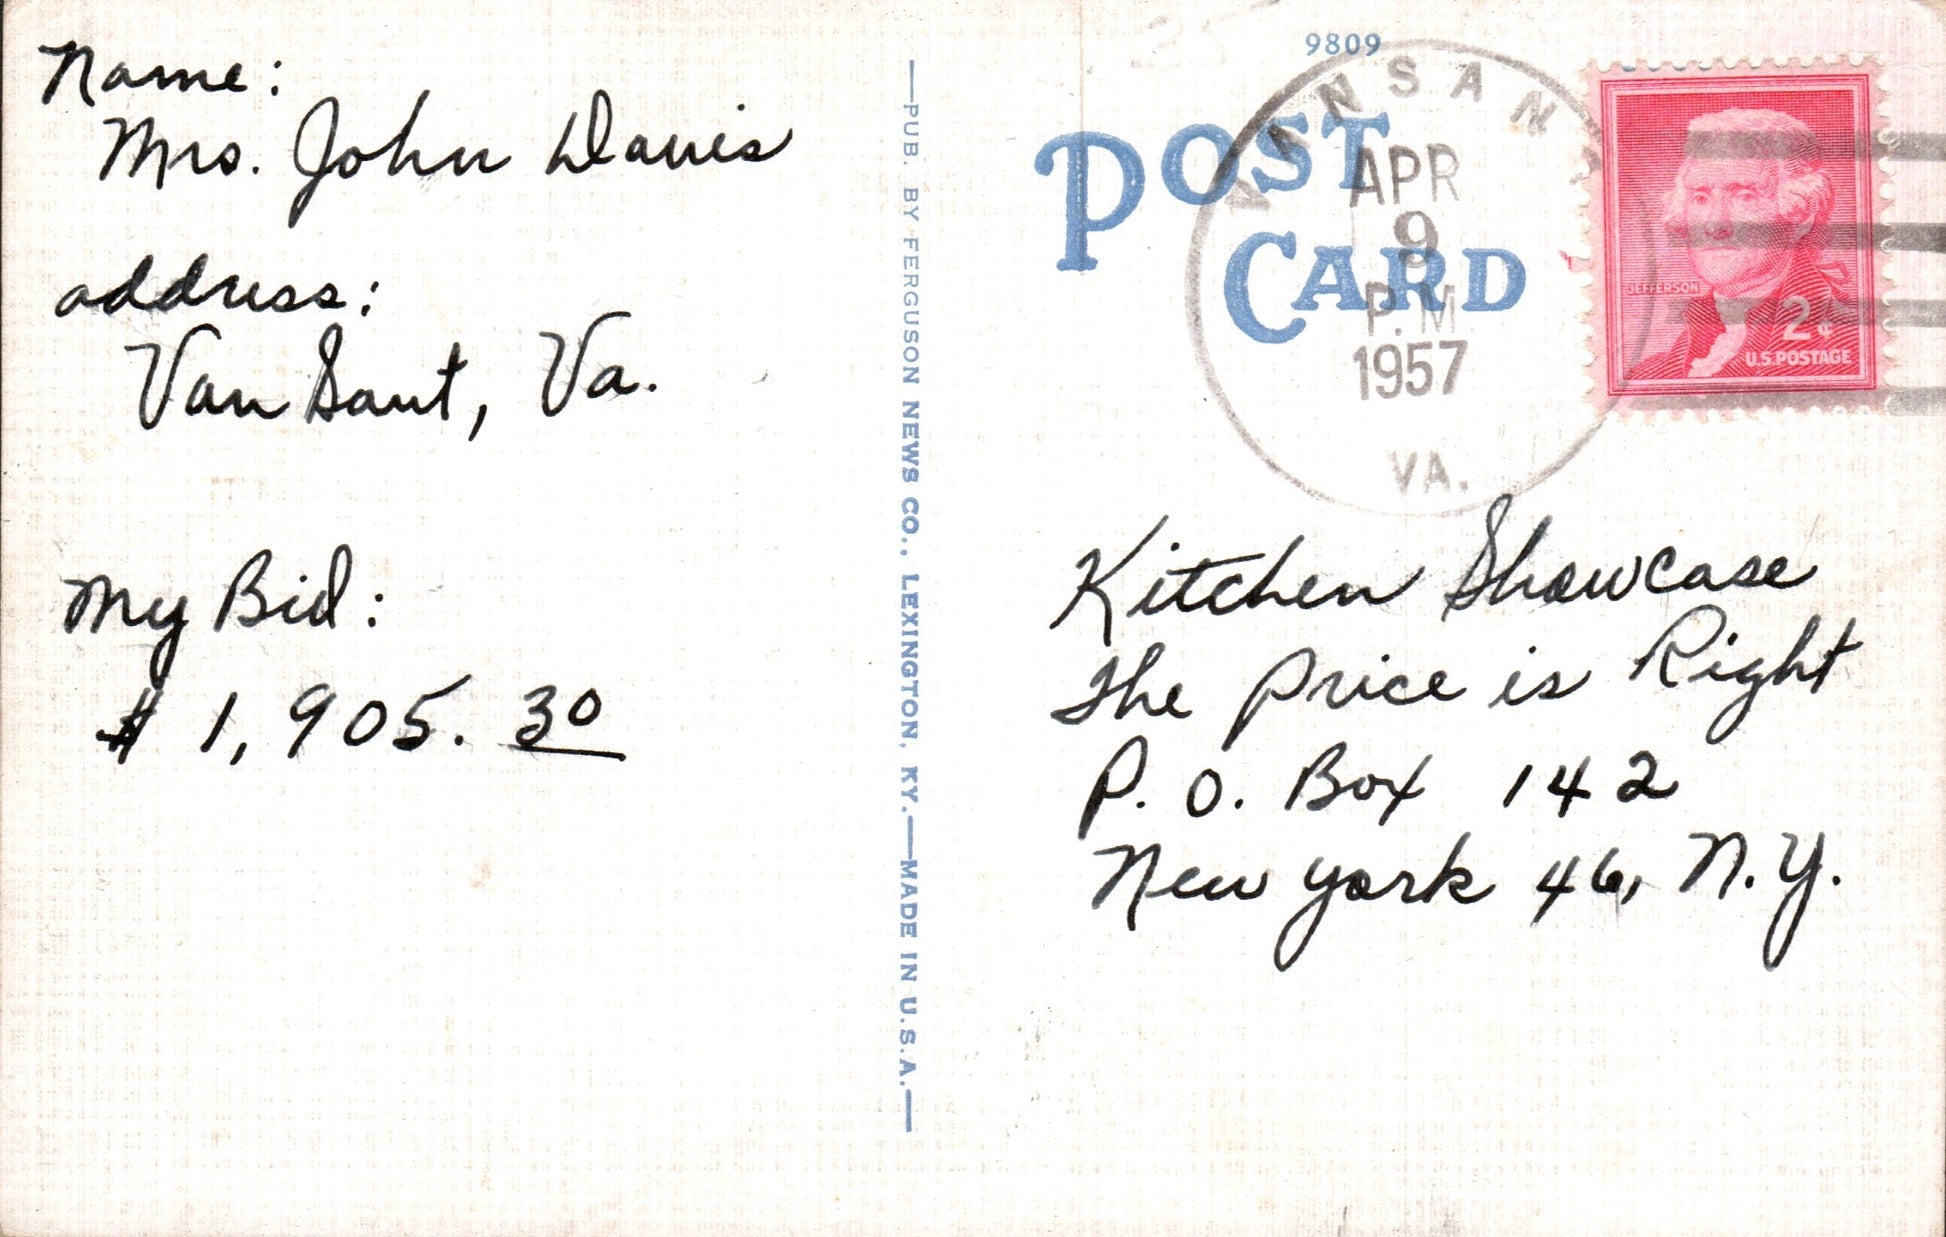 Name:
Mrs. John Davis
address:
Van Sant, Va.
My Bid:
$ 1,905.30
PUB. BY FERGUSON NEWS CO., LEXINGTON, KY. — MADE IN U.S.A.
9809
POST
CARD
VANSANT
APR
9
P.M
1957
VA.
JEFFERSON
2¢
U.S. POSTAGE
Kitchen Showcase
The Price is Right
P. O. Box 142
New York 46, N.Y.